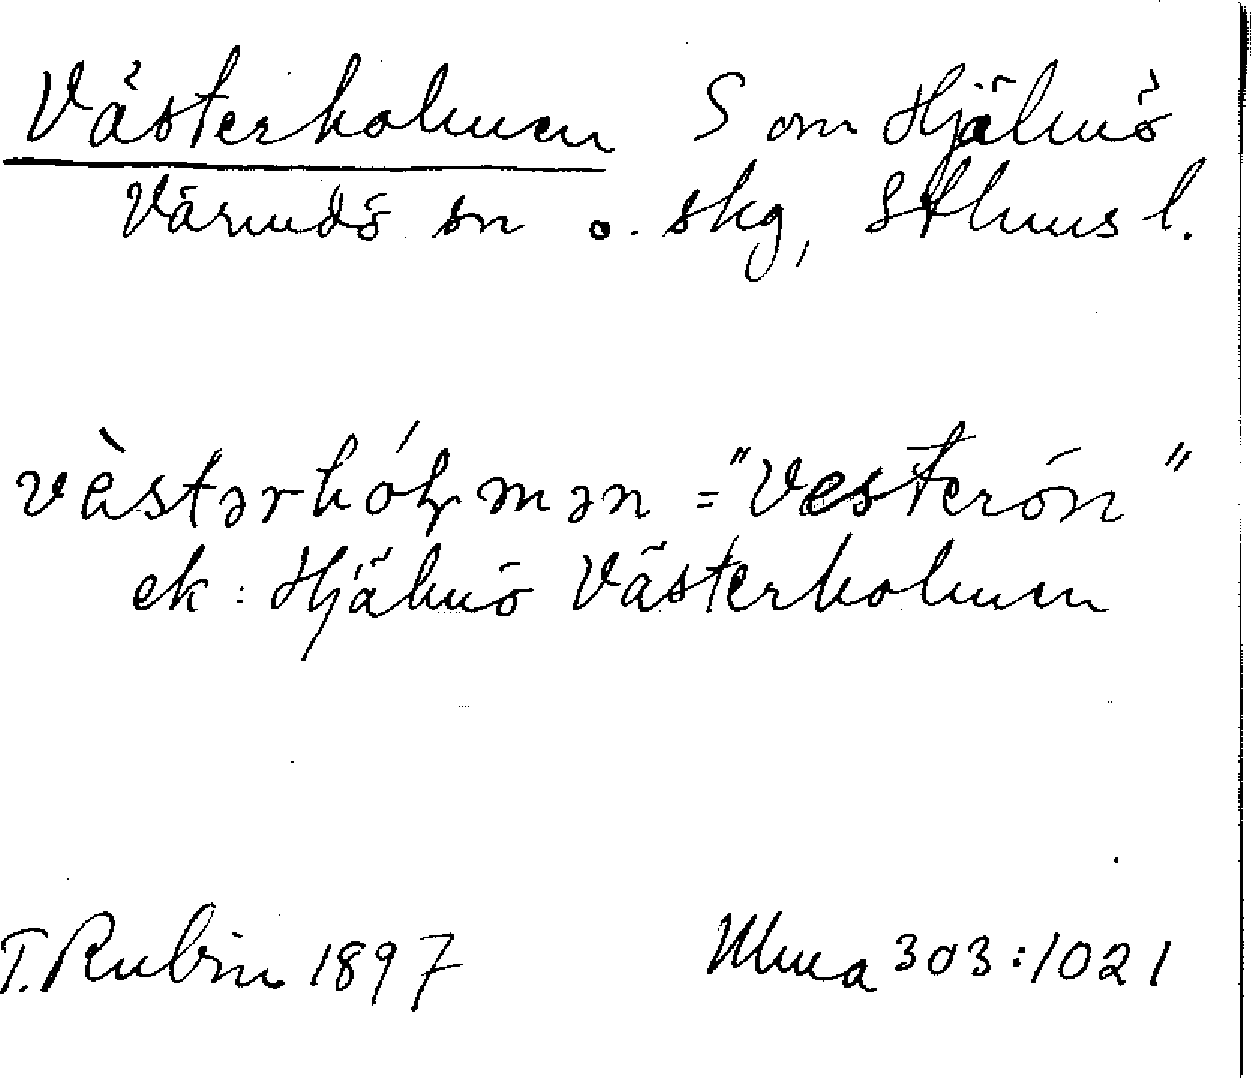 Västerholmen S om Hjälmö
Värmdö sn o. skg, Sthms l.
vèstərhólmən = "Vesterön"
ek: Hjälmö Västerholmen
T. Rubin 1897 Ulma 303:1021